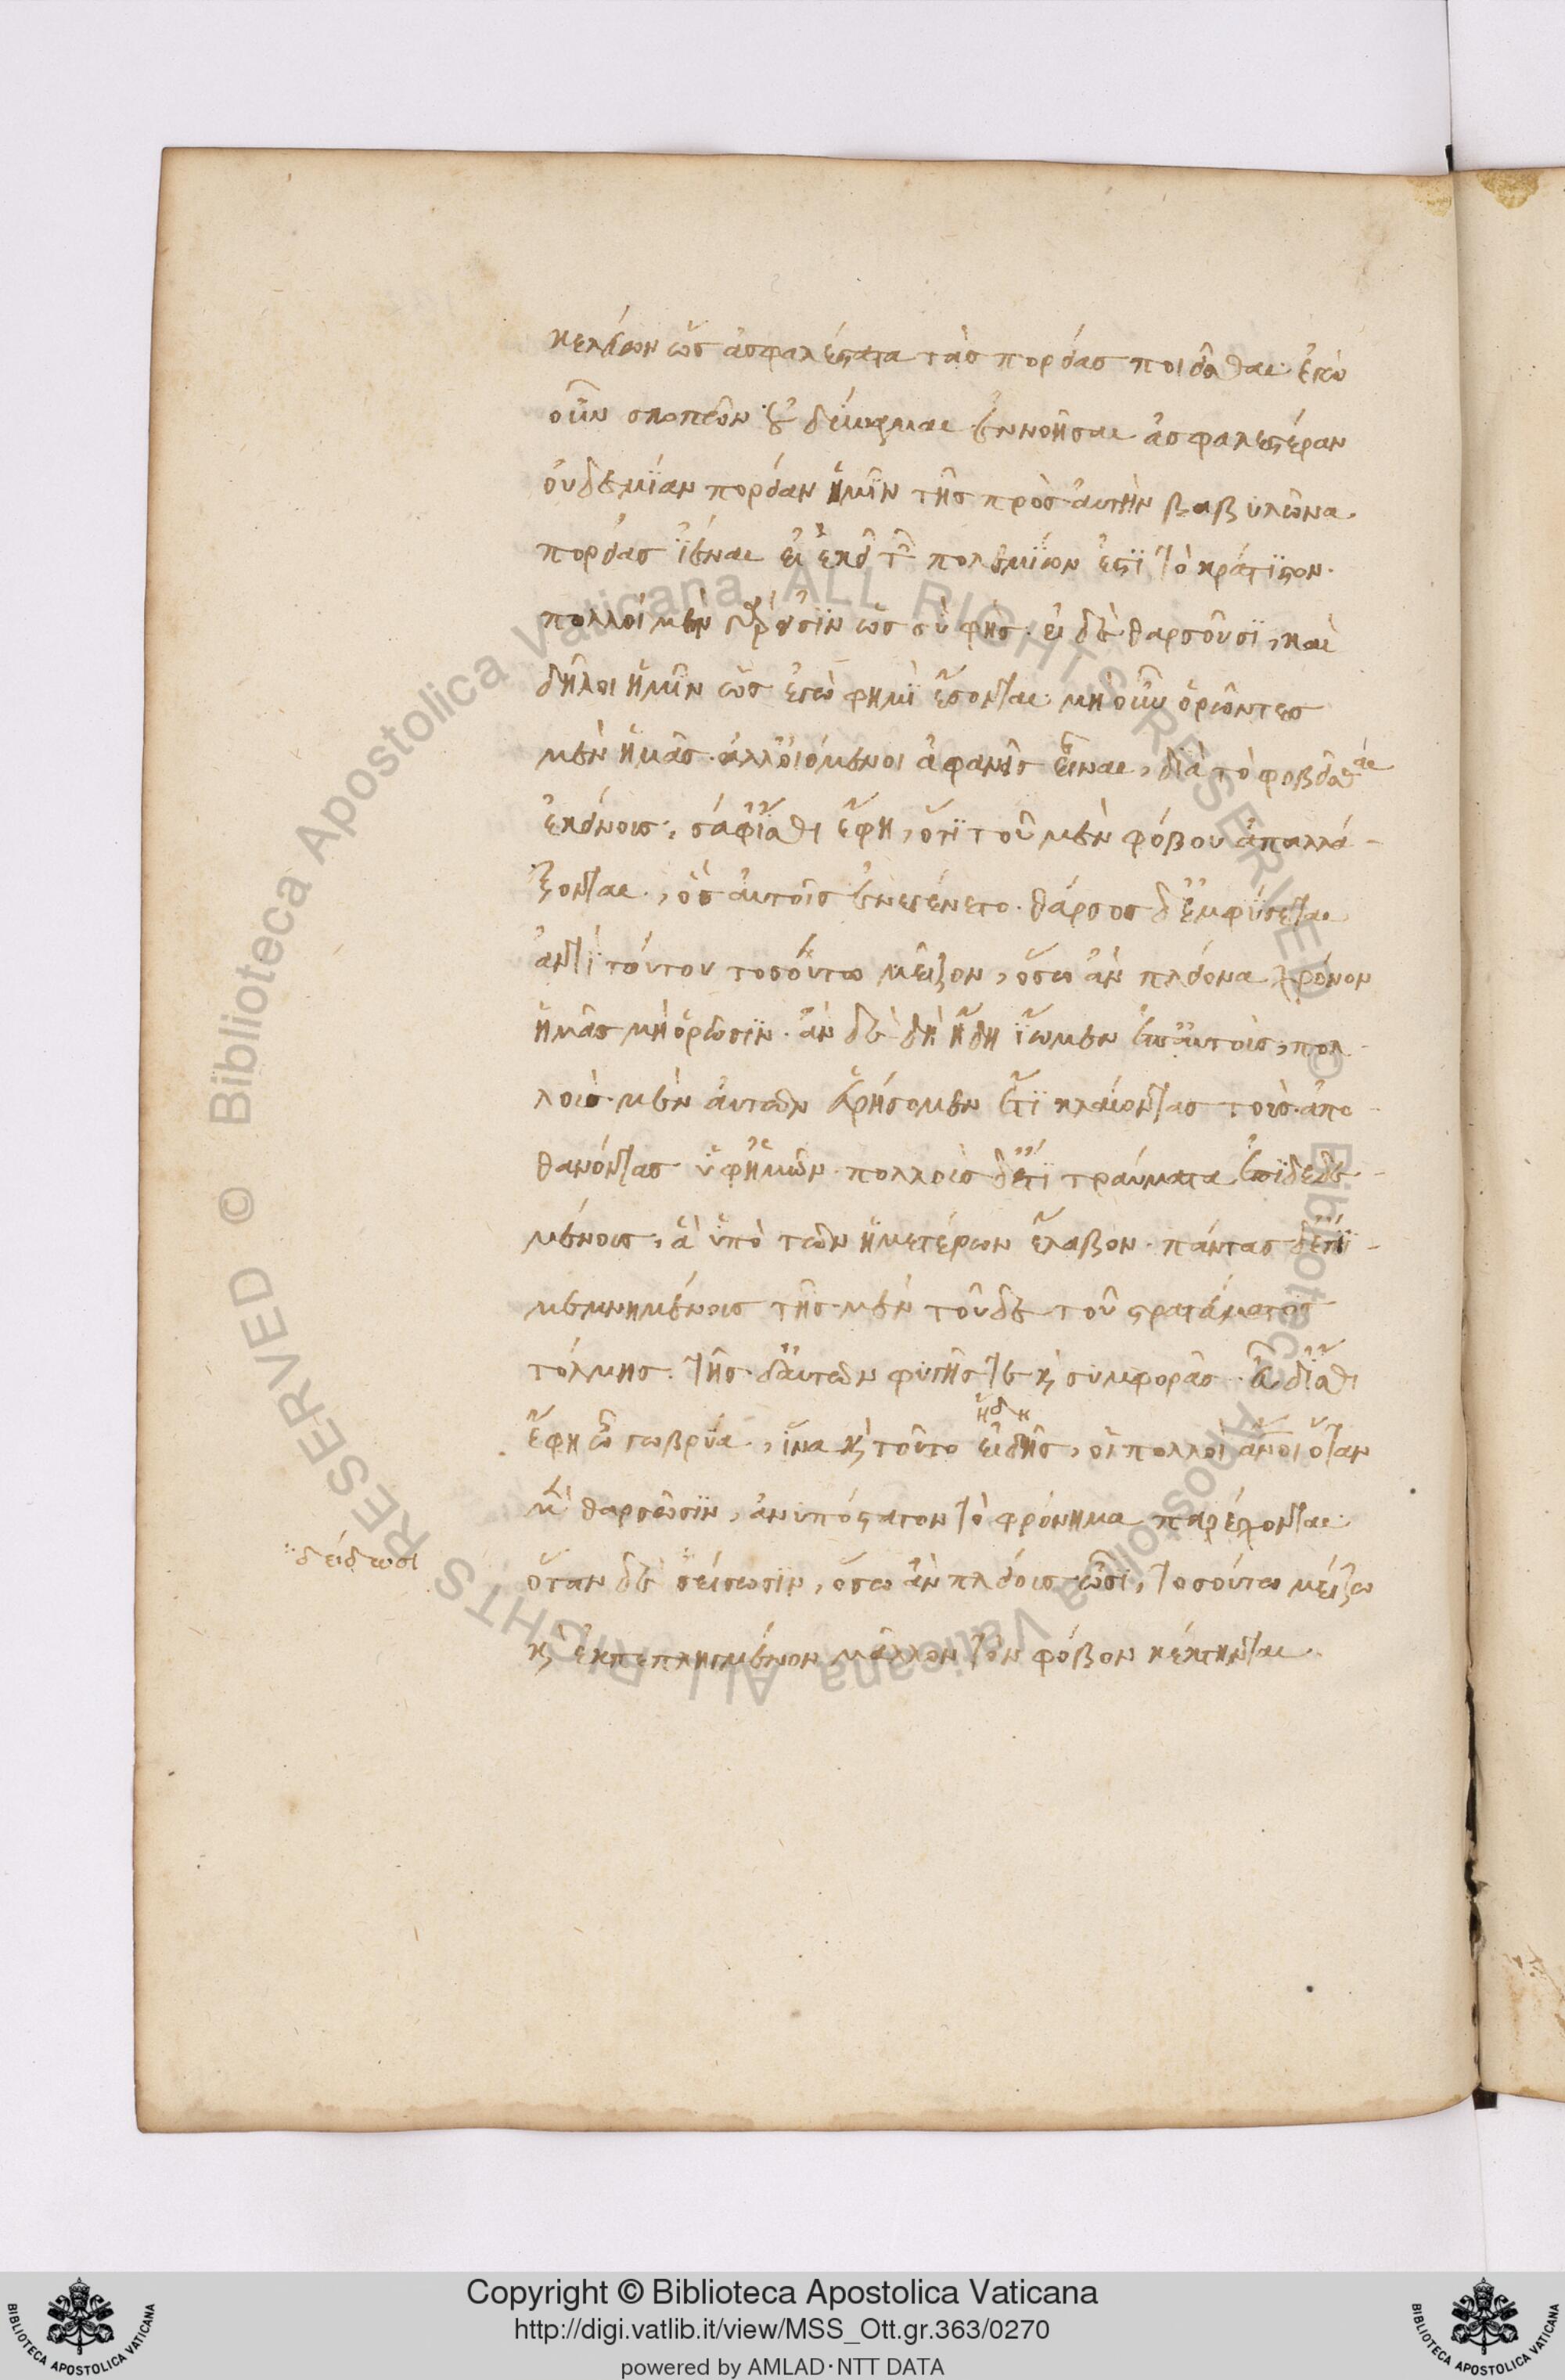 κελεύων ὡς ἀσφαλέστατα τὰς πορείας ποιεῖσθαι. ἐγὼ
οὖν σκοπῶν οὐ δύναμαι ἐννοῆσαι ἀσφαλεστέραν
οὐδεμίαν πορείαν ἡμῖν τῆς πρὸς αὐτὴν βαβυλῶνα
πορείας ἰέναι εἰ ἐκεῖ τῶν πολεμίων ἐστὶ τὸ κράτιστον.
πολλοὶ μέν εἰσιν ὡς σὺ φῄς. εἰ δὲ θαρσοῦσι, καὶ
δῆλοι ἡμῖν ὡς ἐγώ φημι ἔσονται. μὴ οὖν ὁρῶντες
μὲν ἡμᾶς. ἀλλ' οἰόμενοι ἀφανεῖς εἶναι, διὰ τὸ φοβεῖσθαι
ἐκείνους, σάφ' ἴσθι ἔφη, ὅτι τοῦ μὲν φόβου ἀπαλλά-
ξονται, ὃς αὐτοῖς ἐνεγένετο. θάρσος δ' ἐμφύσεται
ἀντὶ τούτου τοσούτω μεῖζον, ὅσω ἂν πλείονα χρόνον
ἡμᾶς μὴ ὁρῶσιν. ἂν δὲ δὴ ἤδη ἴωμεν ἐπ' αὐτοὺς, πολ-
λοὺς μὲν αὐτῶν εὑρήσομεν ἔτι κλαίοντας τοὺς ἀπο-
θανόντας ὑφ' ἡμῶν. πολλοὺς δ' ἔτι τραύματα ἐπιδεδε-
μένους, ἃ ὑπὸ τῶν ἡμετέρων ἔλαβον. πάντας δ' ἔτι
μεμνημένους τῆς μὲν τοῦδε τοῦ στρατεύματος
τόλμης. τῆς δ' αὐτῶν φυγῆς τε καὶ συμφορᾶς. εὖ δ' ἴσθι
ἔφη ὦ γωβρύα, ἵνα καὶ τοῦτο εἰδῇς, οἱ πολλοὶ ἄνοι ὅταν
ηδη
μὲν θαρσῶσιν, ἀνυπόστατον τὸ φρόνημα παρέχονται.
δείδωσι
ὅταν δὲ δείσωσιν, ὅσω ἂν πλείους ὦσι, τοσούτω μείζω
καὶ ἐκπεπληγμένον μᾶλλον τὸν φόβον κέκτηνται.
Copyright © Biblioteca Apostolica Vaticana
http://digi.vatlib.it/view/MSS_Ott.gr.363/0270
powered by AMLAD·NTT DATA
BIBLIOTECA APOSTOLICA VATICANA
BIBLIOTECA APOSTOLICA VATICANA
Biblioteca Apostolica Vaticana ALL RIGHTS RESERVED ©
Biblioteca Apostolica Vaticana ALL RIGHTS RESERVED ©